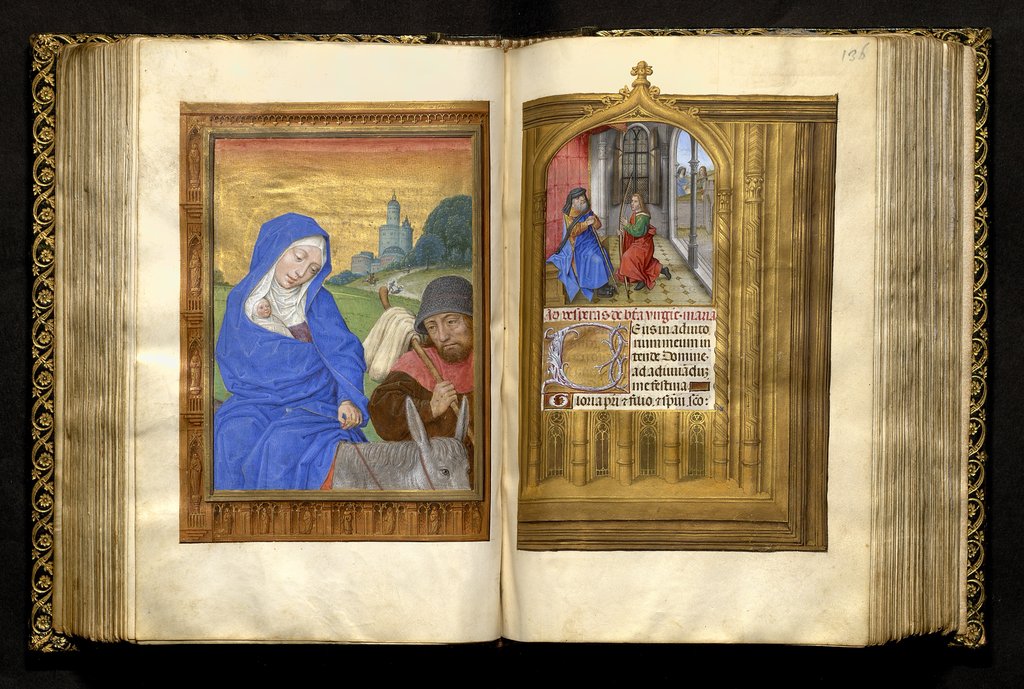 136
Ad vesperas de bta virgīe maria
Deus in adiuto
rium meum in
tende Domine
ad adiuuādūz
me festina
Gloria pri ⁊ filio, ⁊ spiui sc̄o: